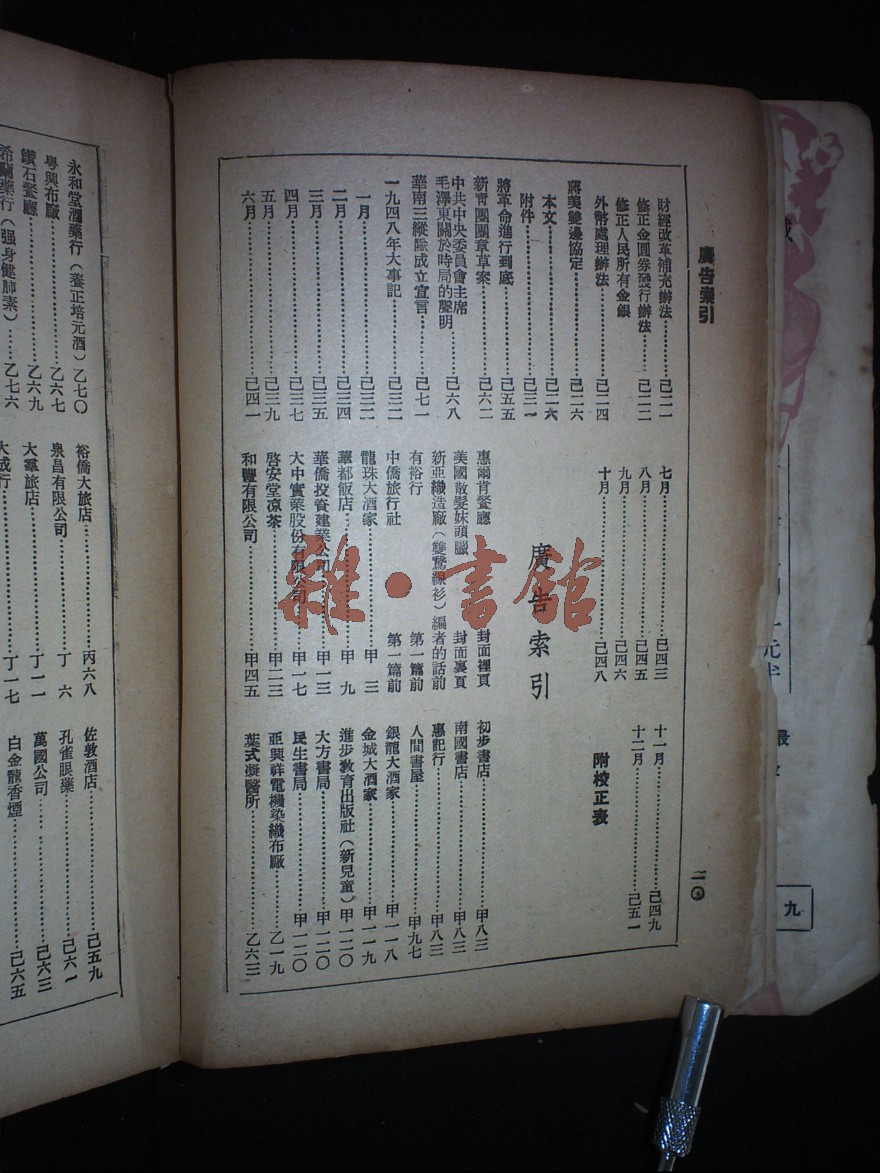 廣告索引
二〇
財經改革補充辦法……己二一
修正金圓券發行辦法……己二二
修正人民所有金銀
外幣處理辦法……己二四
蔣美雙邊協定……己二六
本文……己二六
附件……己三一
將革命進行到底……己五五
新青團團章草案……己六二
中共中央委員會主席
毛澤東關於時局的聲明……己六八
華南三縱隊成立宣言……己七一
一九四八年大事記……己三二
一月……己三二
二月……己三四
三月……己三五
四月……己三七
五月……己三九
六月……己四一
七月……己四三
八月……己四五
九月……己四六
十月……己四八
十一月……己四九
十二月……己五一
附校正表
廣告索引
惠爾肯餐廳 封面裡頁
美國散髮妹頭臘 封面裏頁
新亞織造廠(雙鷺線衫)編者的話前
有裕行 第一篇前
中僑旅行社 第一篇前
龍珠大酒家……甲三
華都飯店……甲九
華僑投資建業公司……甲一三
大中實業股份有限公司……甲一七
啓安堂凉茶……甲二三
和豐有限公司……甲四五
初步書店……甲八三
南國書店……甲八三
惠記行……甲八三
人間書屋……甲九七
銀龍大酒家……甲一一八
金城大酒家……甲一一九
進步教育出版社(新兒童)甲一二〇
大方書局……甲一二〇
民生書局……甲一二〇
亞興祥電機染織布廠……乙一九
葉式凝醫所……乙六三
永和堂酒藥行(養正培元酒)乙七〇
粤興布廠……乙六七
鑽石餐廳……乙六九
希爾藥行(强身健肺素)……乙七六
裕僑大旅店……丙六八
泉昌有限公司……丁六
大羣旅店……丁一一
大成行……丁一七
佐敦酒店……己五九
孔雀眼藥……己六一
萬國公司……己六三
白金龍香煙……己六五
雜·書館
九